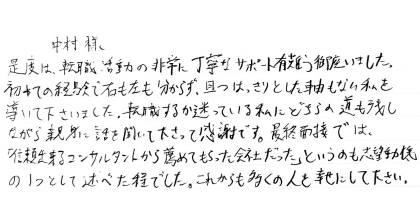 中村 様、
是度は、転職活動の非常に丁寧なサポート有難う御座いました。
初めての経験で右も左も分からず、且つはっきりとした軸もない私を
導いて下さいました。転職するか迷っている私にどちらの道も残し
ながら親身に話を聞いて下さって感謝です。最終面接では、
「信頼出来るコンサルタントから薦めてもらった会社だった」というのも志望動機
の1つとして述べた程でした。これからも多くの人を幸せにして下さい。